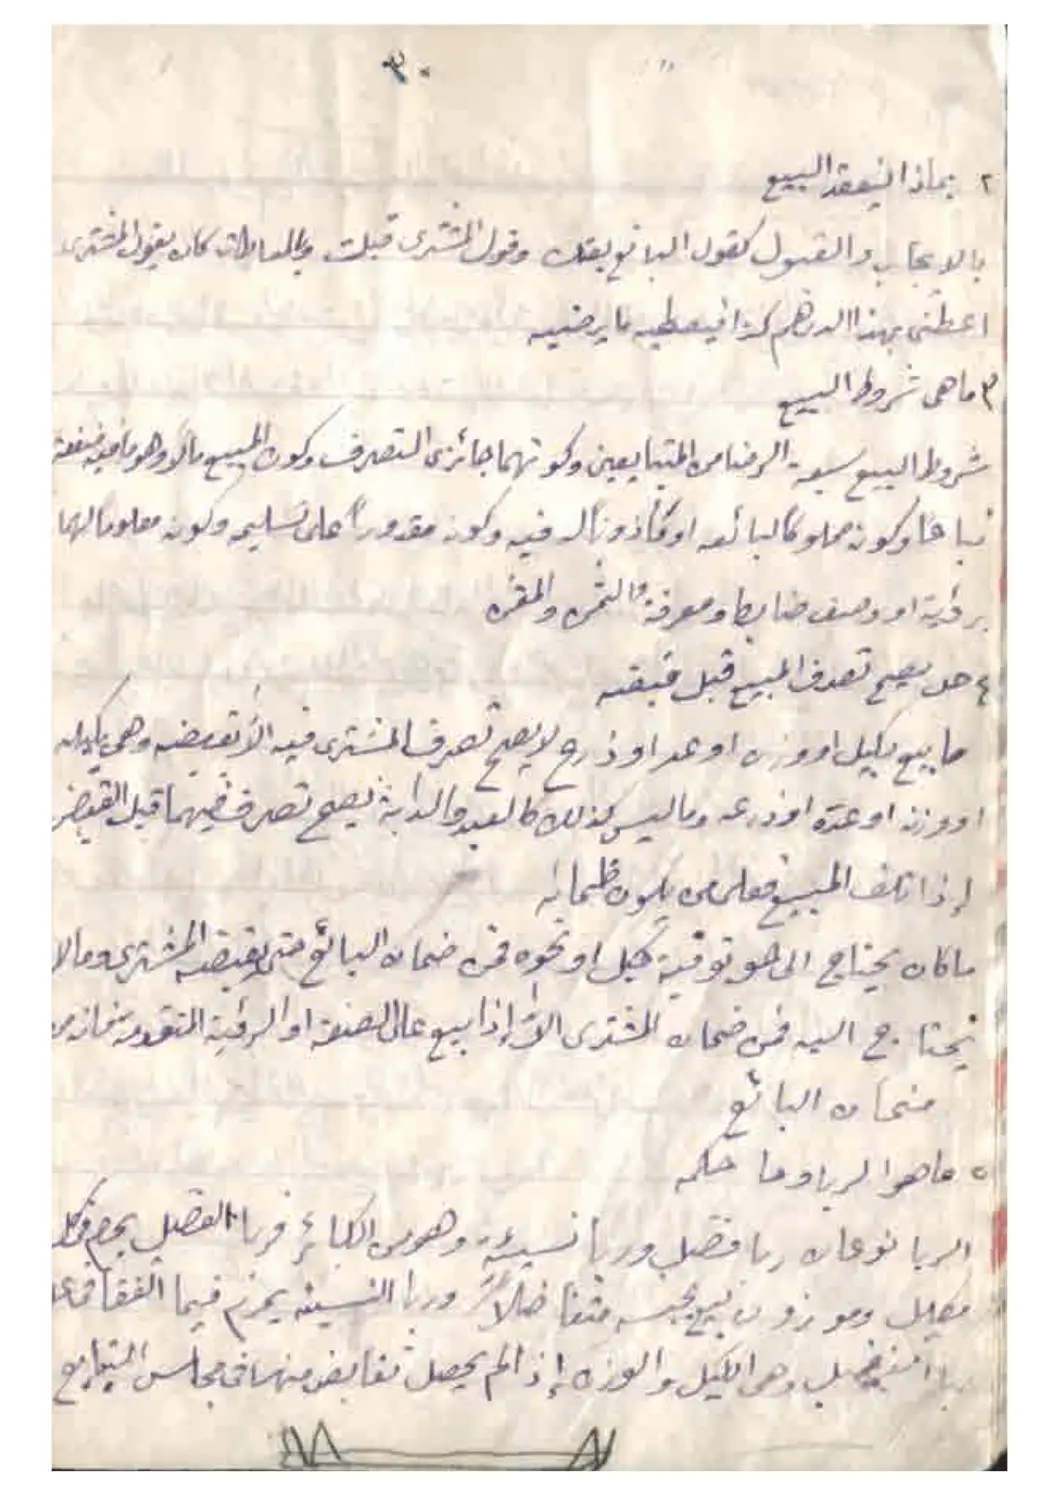 ٢ بماذا ينعقد البيع
بالإيجاب والقبول كقول البائع بعتك وقول المشترى قبلت وبالمعاطات كان يقول المشترى
اعطنى بهذا الدرهم كذا فيعطيه ما يرضيه
٣ ماهى شروط البيع
شروط البيع سبعة الرضا من المتبايعين وكونهما جائزى التصرف وكون المبيع مالا وهو ما فيه منفعة
مباحة وكونه مملوكا لبائعه او مأذونا له فيه وكونه مقدوراً على تسليمه وكونه معلوما لهما
برؤية او وصف ضابط ومعرفة الثمن
٤ هل يصح تصرف المبيع قبل قبضه
ما بيع بكيل او وزن او عد او ذرع لا يصح تصرف المشترى فيه الا بقبضه وهى بكيله
او وزنه او عده او ذرعه وما ليس كذلك كالعبد والدابة يصح تصرف فيهما قبل القبض
إذا تلف المبيع فعلى من يكون ظمانه
ما كان يحتاج الى حق توفية ككيل او نحوه فمن ضمان البائع حتى يقبضه المشترى وما لا
يحتاج اليه فمن ضمان المشترى الا إذا بيع على الصفة او الرؤية المتقدمة فانه من
ضمان البائع
٥ ماهو الربا وما حكمه
الربا نوعان ربا فضل وربا نسيئة وهو من الكبائر فربا الفضل يحرم فى كل
مكيل وموزون بيع بجنسه متفاضلاً وربا النسيئة يحرم فيما اتفقا فى
وهى الكيل والوزن إذا لم يحصل تقابض منهما فى مجلس التبايع